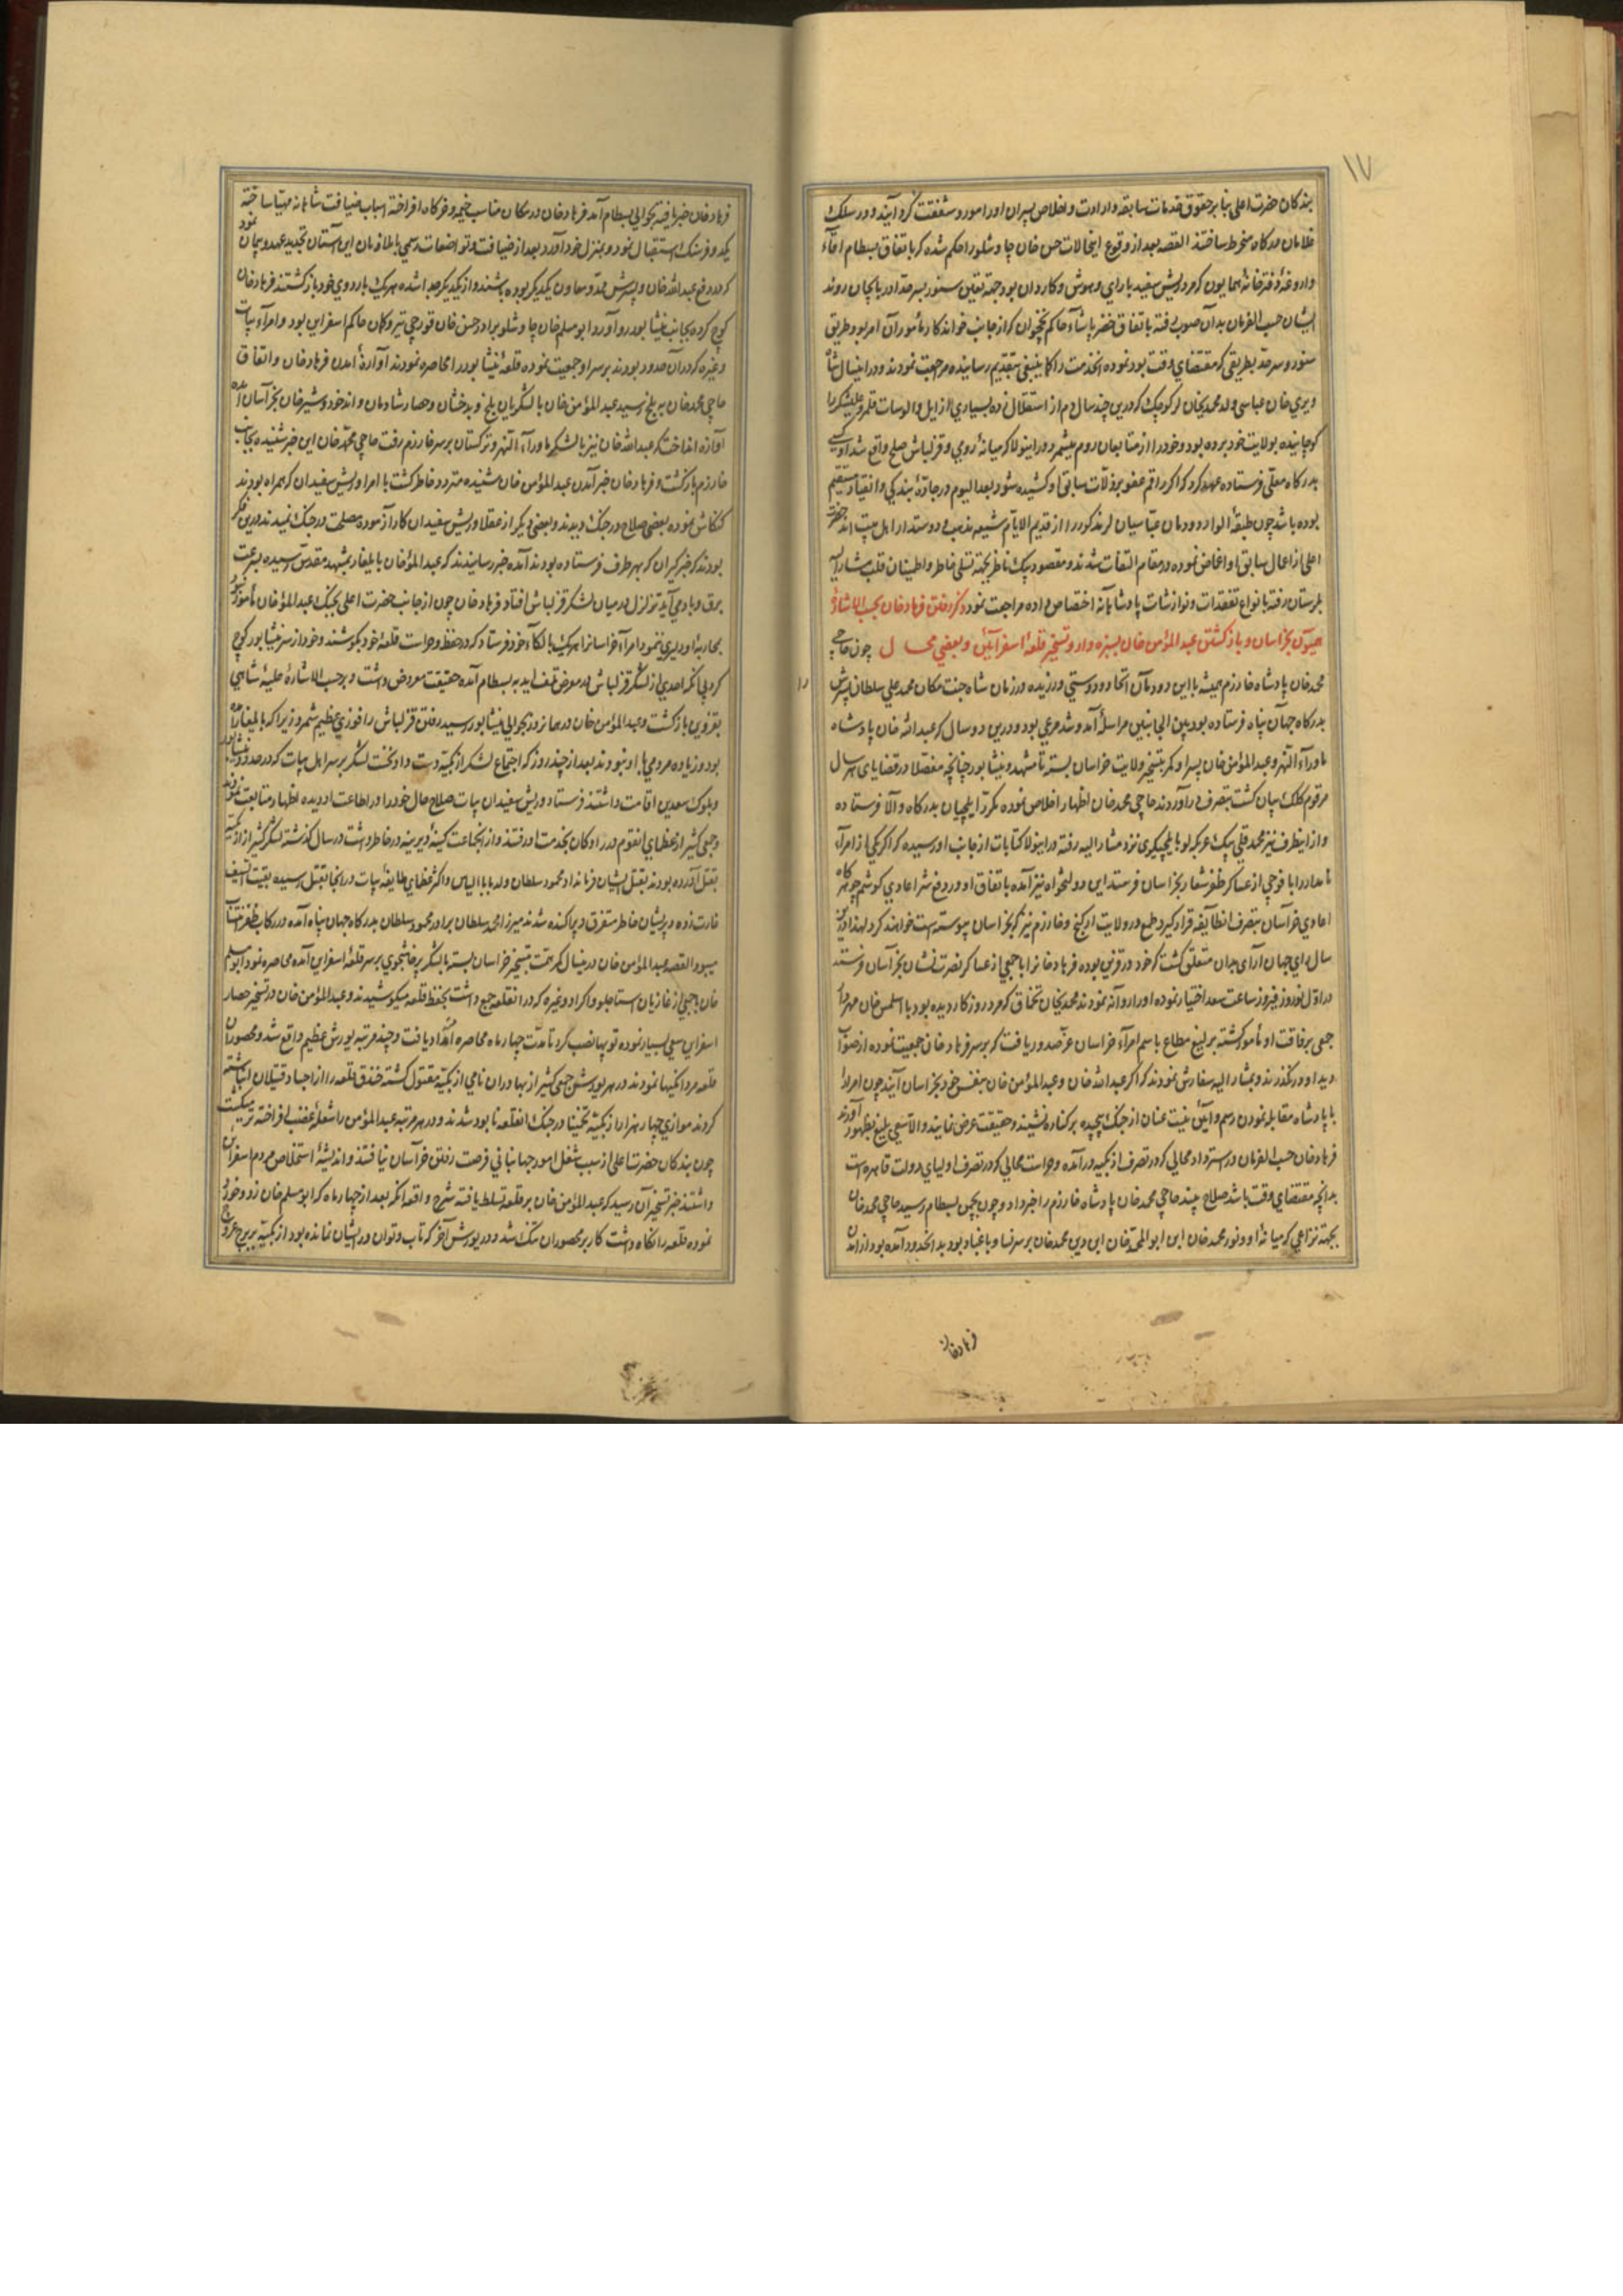 ١٧
بندکان حضرت اعلی بنابر حقوق خدمات سابقه وارادت واخلاص پسران اورا مورد شفقت کردانیده در سلک
غلامان درکاه منخرط ساختند القصه بعد از وقوع اینحالات حسن خان چاوشلو را حکم شد که باتفاق بسطام آقاء
داروغهٔ دفترخانهٔ همایون که مرد ریش سفید بارای وهوش وکاردان بود جهة تعین سنور بسرحد ادربایجان روند
ایشان حسب الفرمان بدان صوب رفته باتفاق خضر پاشاء حاکم نخچوان که از جانب خواندکار مأمور آن امر بود طریق
سنور وسرحد بطریقی که مقتضای وقت بود نموده انخدمت را کما ینبغی بتقدیم رسانیده مراجعت نمودند ودر اینسال
ویردی خان عباسی ولد محمدیخان لر کوچک که درین چند سال دم از استقلال زده بسیاری از ایل والوسات قلمرو علیشکر را
کوچانیده بولایت خود برده بود وخود را از متابعان روم میشمرد ودر اینولا که میانهٔ رومی وقزلباش صلح واقع شد
بدرکاه معلی فرستاده عهد کرد که اکر رقم عفو بر زلات سابق او کشیده شود بعد الیوم در جادهٔ بندکی وانقیاد مستقیم
بوده باشد چون طبقهٔ الوار ودودمان عباسیان لر مذکور را از قدیم الایام شیعه مذهب و دوستدار اهل بیت اند حضرت
اعلی از اعمال سابق او اغماض نموده در مقام التفات شدند ومقصود بیک ناظر بجهة تسلی خاطر واطمینان قلب مشارالیه
بلرستان رفته بانواع تفقدات ونوازشات پادشاهانه اختصاص داده مراجعت نمود ذکر رفتن فرهادخان بحسب الاشارهٔ
همیون بخراسان وبازکشتن عبدالمؤمن خان بسبزه وار وتسخیر قلعهٔ اسفراین وبعضی محال چون حاجی
محمدخان پادشاه خارزم همیشه بااین دودمان اتحاد ودوستی ورزیده در زمان شاه جنت مکان محمدعلی سلطان پسرش
بدرکاه جهان پناه فرستاده بود بین الجانبین مراسله آمد وشد مرعی بود ودرین دو سال که عبدالله خان پادشاه
ماوراء النهر وعبدالمؤمن خان پسر او کمر بتسخیر ولایت خراسان بسته تا مشهد ونیشابور چنانچه مفصلا در قضایای هر سال
مرقوم کلک بیان کشت بتصرف درآوردند حاجی محمدخان اظهار اخلاص نموده مکررا ایلچیان بدرکاه والا فرستاده
وازاینطرف نیز محمدقلی بیک عربکرلو بایلچیکری نزد مشارالیه رفته دراینولا کتابات از جانب او رسیده که اکر یکی از امراء
نامدار را با فوجی از عساکر ظفر شعار بخراسان فرستد این دولتخواه نیز آمده باتفاق او در دفع شر اعادی کوشم چه هرکاه
اعادی خراسان بتصرف انطایفه قرار کیرد طمع در ولایت اورکنج وخارزم نیز که بخراسان پیوسته است خواهند کرد لهذا درین
سال رای جهان آرای بدان متعلق کشت که خود در قزوین بوده فرهادخانرا با جمعی از عساکر نصرت نشان بخراسان فرستند
در اول نوروز فیروز ساعت سعد اختیار نموده اورا روانه نمودند محمدیخان تخماق که مرد روزکار دیده بود با اسلمس خان مهردار
جمعی برفاقت او مأمور کشته برلیغ مطاع باسم امراء خراسان عز صدور یافت که بر سر فرهادخان جمعیت نموده از صوابدید
دید او در نکذرند وبمشارالیه سفارش نمودند که اکر عبدالله خان وعبدالمؤمن خان بنفس خود بخراسان آیند چون امرا را
با پادشاه مقابله نمودن رسم وآئین نیست عنان از جنک پیچیده بر کناره نشیند وحقیقت عرض نمایند والا سعی بلیغ بظهور آورند
فرهادخان حسب الفرمان در استرداد محالی که در تصرف ازبکیه درآمده وحراست محالی که در تصرف اولیای دولت قاهره است
بدانچه مقتضای وقت باشد صلاح بیند حاجی محمدخان پادشاه خارزم را خبر داد وچون بچمن بسطام رسید حاجی محمدخان
بجهة نزاعی که میانهٔ او ونور محمدخان ابن ابوالمحمدخان ابن دین محمدخان بر سر نسا وباغباد بود بدانحدود آمده بود از آمدن
فرهادخان
فرهادخان خبر یافته بحوالی بسطام آمد فرهادخان در مکان مناسب خیمه وخرکاه افراخته اسباب ضیافت شاهانه مهیا ساخته
یکدو فرسنک استقبال نمود وبمنزل خود آورد بعد از ضیافت وتواضعات رسمی با ملازمان این آستان تجدید عهد وپیمان نمود
که در دفع عبدالله خان وپسرش ممد ومعاون یکدیکر بوده باشند واز یکدیکر جدا شده هریک باردوی خود بازکشتند فرهادخان
کوچ کرده بجانب نیشابور روآورد ابومسلم خان چاوشلو برادر حسن خان قورچی تیر وکمان حاکم اسفراین بود وامراء بیات
وغیره که در آن حدود بودند بر سر او جمعیت نموده قلعهٔ نیشابور را محاصره نمودند آوازهٔ آمدن فرهادخان واتفاق
حاجی محمدخان به بلخ رسید عبدالمؤمن خان با لشکریان بلخ وبدخشان وحصار شادمان واندخود وشبرغان بخراسان آمده
آوازه انداخت که عبدالله خان نیز با لشکر ماوراء النهر وترکستان بر سر خارزم رفت حاجی محمدخان این خبر شنیده بجانب
خارزم بازکشت وفرهادخان خبر آمدن عبدالمؤمن خان شنیده متردد خاطر کشت با امرا وریش سفیدان که همراه بودند
کنکاش نموده بعضی صلاح در جنک دیدند وبعضی دیکر از عقلا وریش سفیدان کارآزموده مصلحت در جنک ندیدند درین فکر
بودند که خبرکیران که بهر طرف فرستاده بودند آمده خبر رسانیدند که عبدالمؤمنخان بایلغار بمشهد مقدس رسیده بسرعت
برق وباد می آید تزلزل در میان لشکر قزلباش افتاد فرهادخان چون از جانب حضرت اعلی بجنک عبدالمؤمنخان مأمور نبود
بمحاربهٔ او دلیری ننمود امراء خراسانرا هریک بالکاء خود فرستاد که در حفظ وحراست قلعهٔ خود بکوشند وخود از سر نیشابور کوچ
کرد بی انکه احدی از لشکر قزلباش در معرض تلف اید به بسطام آمده حقیقت معروض داشت وبرحسب الاشارهٔ علیهٔ شاهی
بقزوین بازکشت وعبدالمؤمن خان در همانروز بحوالی نیشابور رسید رفتن قزلباش را فوزی عظیم شمرد زیرا که بایلغار آمده
بود وزیاده مردمی با او نبودند بعد از چند روز که اجتماع لشکر ازبکیه دست داد نخست لشکر بر سر اهل بیات که در حدود نیشابور
وبلوک سعدین اقامت داشتند فرستاد وریش سفیدان بیات صلاح حال خود را در اطاعت او دیده اظهار متابعت نمودند
وجمعی کثیر از عظمای انقوم در رادکان بخدمت او رفتند واز انجماعت کینهٔ دیرینه در خاطر داشت در سال کذشته لشکر کثیر از ازبکیه
بقتل آورده بودند بقتل ایشان فرمان داد محمود سلطان ولد بابا الیاس واکثر عظمای طایفهٔ بیات در انجا بقتل رسیده بقیت السیف
غارت زده وپریشان خاطر متفرق وپراکنده شدند میرزا محمد سلطان برادر محمود سلطان بدرکاه جهان پناه آمده در رکاب ظفر انتساب
میبود القصه عبدالمؤمن خان درینسال که همت بتسخیر خراسان بسته با لشکر پرخاشجوی بر سر قلعهٔ اسفراین آمده محاصره نمود ابومسلم
خان با جمعی از غازیان استاجلو واکراد وغیره که در انقلعه جمع داشت بحفظ قلعه میکوشیدند وعبدالمؤمن خان در تسخیر حصار
اسفراین سعی بسیار نموده توپها نصب کرد تا مدت چهار ماه محاصره امتداد یافت وچند مرتبه یورش عظیم واقع شد ومحصوران
قلعه مردانکیها نمودند ودر هر یورش جمعی کثیر از بهادران نامی ازبکیه مقتول کشته خندق قلعه را از اجساد قتیلان انباشته
کردند موازی چهار هزار ازبکیه تخمینا در جنک انقلعه نابود شدند ودر هر مرتبه عبدالمؤمن را شعلهٔ غضب افراخته تر میکشت
چون بندکان حضرت اعلی از سبب شغل امور جهانبانی فرصت رفتن خراسان نیافتند واندیشهٔ استخلاص مردم اسفراین
داشتند خبر تسخیر آن رسید که عبدالمؤمن خان بر قلعه تسلط یافته شرح واقعه انکه بعد از چهار ماه که ابومسلم خان زد وخورد
نموده قلعه را نکاه داشت کار بر محصوران تنک شد ودر یورش آخر که تاب وتوان در ایشان نمانده بود ازبکیه بر برج عروج